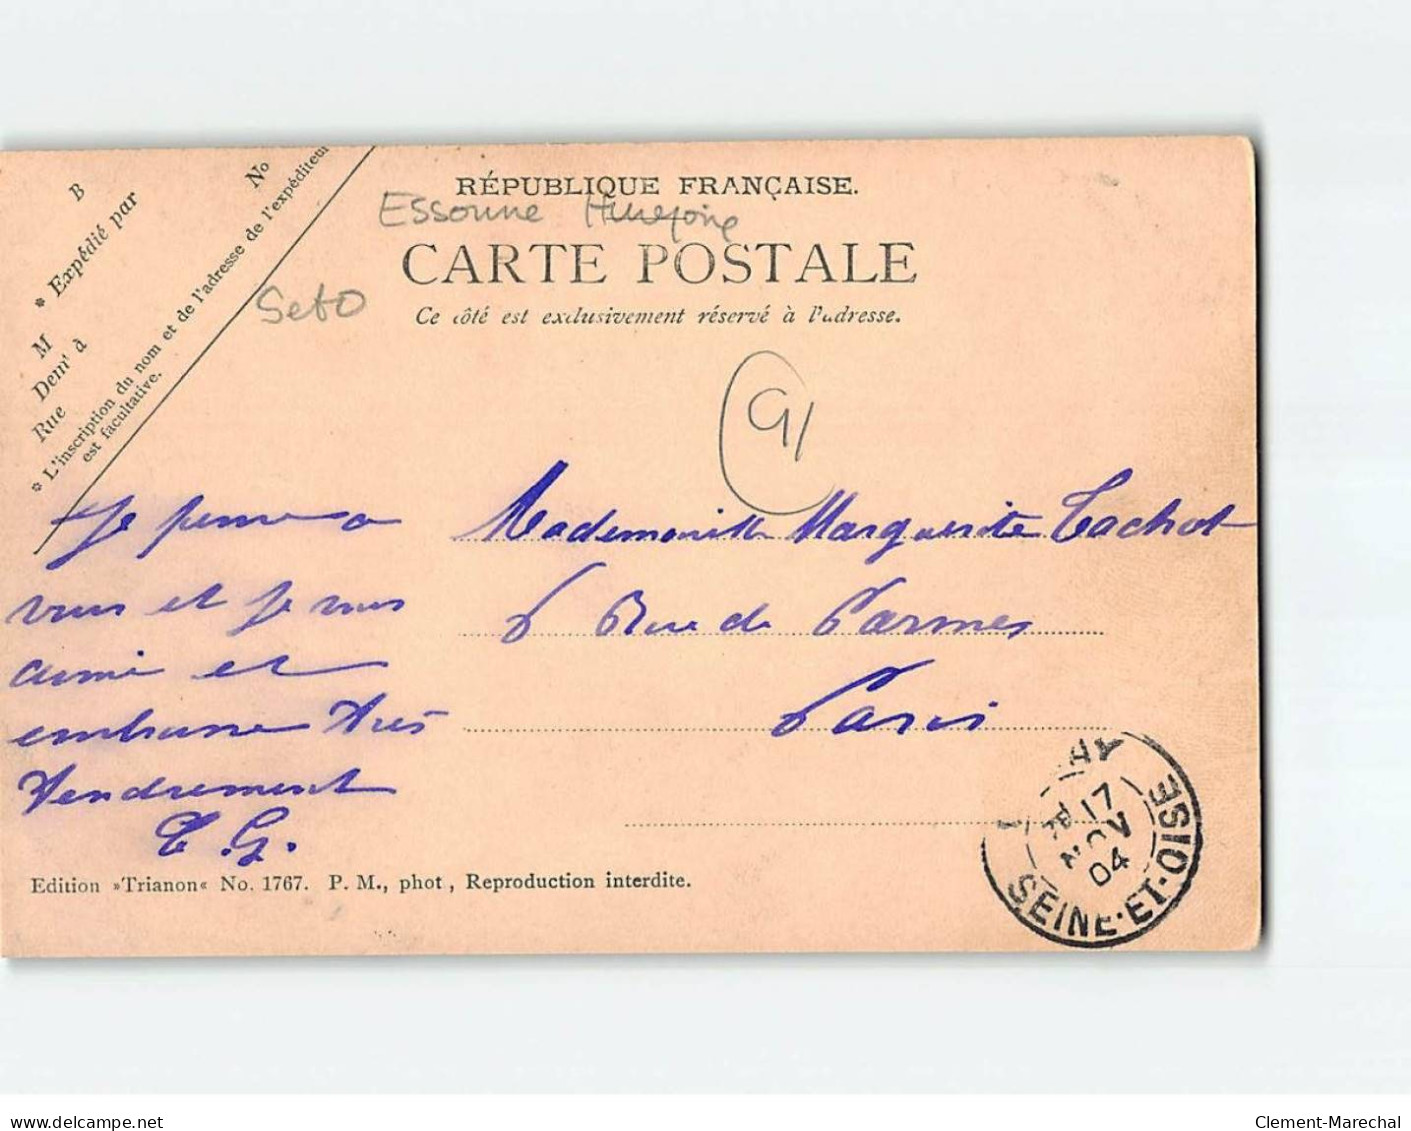 RÉPUBLIQUE FRANÇAISE.
Essonne
CARTE POSTALE
Ce côté est exclusivement réservé à l'adresse.
B
No
* Expédié par
M
Demt à
Rue
* L'inscription du nom et de l'adresse de l'expéditeur
est facultative.
Seto
91
Je pense a
vous et je vous
aime et
embrasse très
tendrement
T. G.
Mademoiselle Marguerite Tachot
6 Rue de Parme
Paris
17
NOV
04
SEINE-ET-OISE
Edition »Trianon« No. 1767. P. M., phot, Reproduction interdite.
delcampe.net
Clement-Marechal